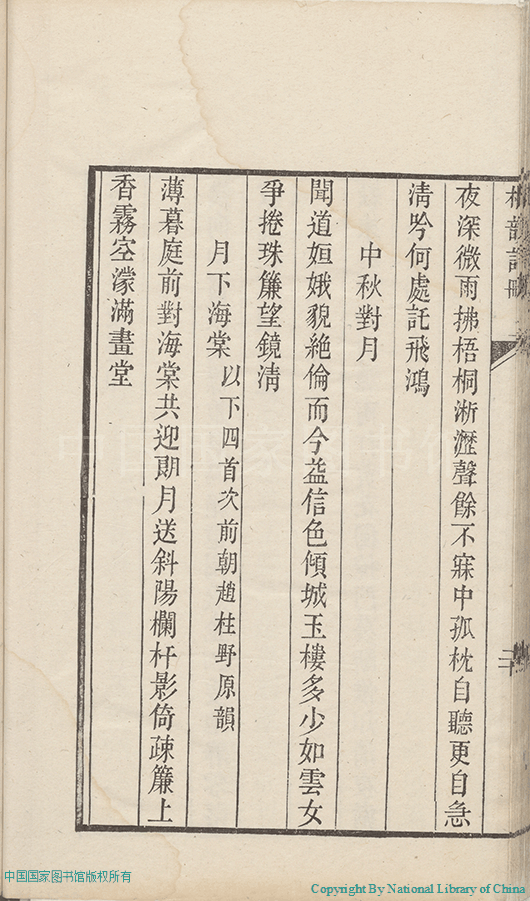 夜深微雨拂梧桐淅瀝聲餘不寐中孤枕自聽更自急
淸吟何處託飛鴻
中秋對月
聞道姮娥貌絶倫而今益信色傾城玉樓多少如雲女
爭捲珠簾望鏡淸
月下海棠以下四首次前朝趙柱野原韻
薄暮庭前對海棠共迎朗月送斜陽欄杆影倚疎簾上
香霧空濛滿畫堂
中国国家图书馆版权所有
Copyright By National Library of China